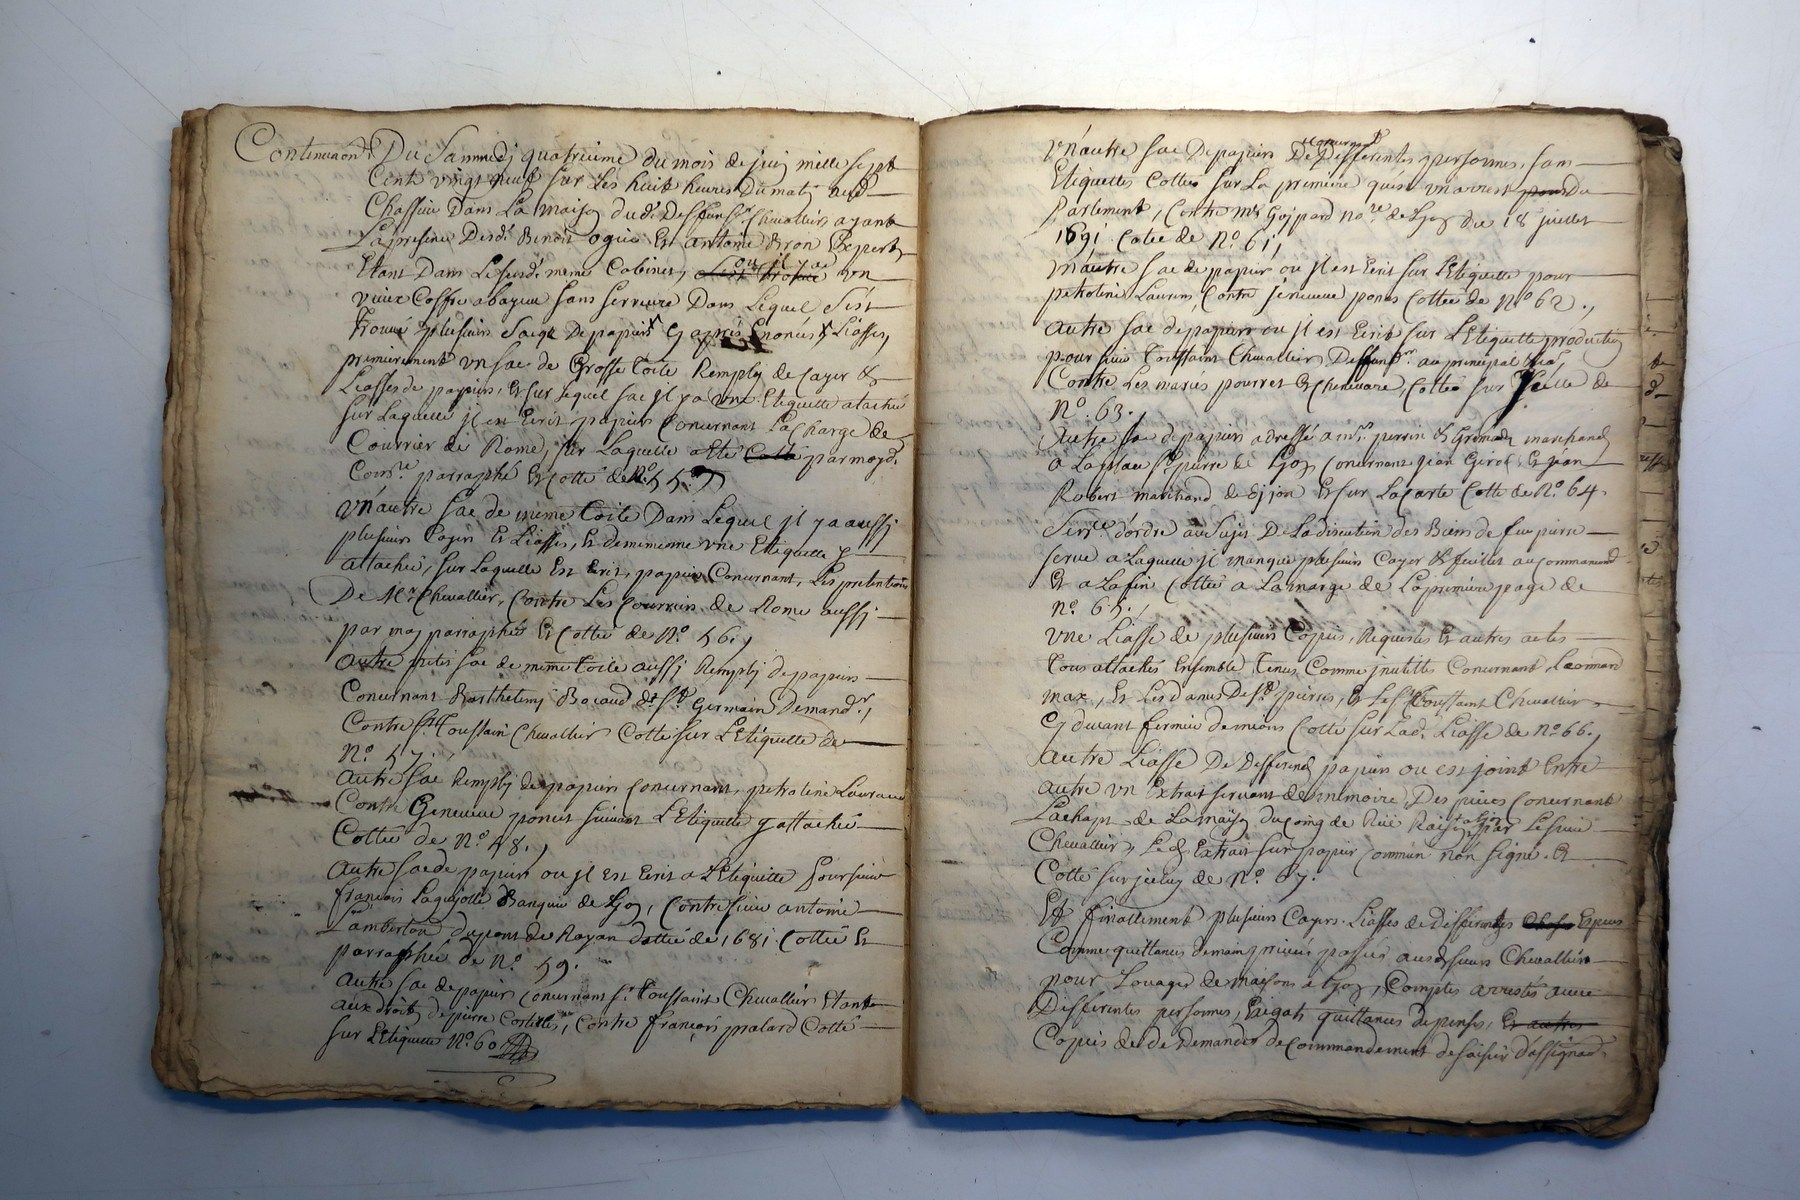 Continuaon. Du Sammedj quatrieme du mois de juin mille sept
Cents vingt neuf sur Les huit heures Du matin
Dans La maison dud. Deffunt Sr. Chevallier ayant
La presence Desd. Benoit ogier Et antoine Bron Experts
Etant Dans Le susd. meme Cabinet, ou jl y a un
vieux Coffre abayeu sans serrure Dans Lequel s'est
Trouvé plusieurs sacqs De papiers Cy apres Enonces & Liasses,
premierement un sac de Grosse Toile Remply de Cayer &
Liasses de papiers, Et sur Lequel sac jl y a une Etiquette atachée
sur Laquelle jl est Ecrit papiers Concernant La Charge de
Courrier de Rome, sur Laquelle a Eté par moyd.
Comre. parraphé Et Cotté de No. 55.
un autre sac de meme Toile Dans Lequel jl y a aussj
plusieurs Cayers Et Liasses, Et de mesme une Etiquette y
attachée, sur Laquelle Est Ecrit, papiers Concernant, Les pretentions
De Mr. Chevallier, Contre Les Courriers de Rome aussj
par moy parraphée Et Cottée de No. 56.,
autre petit sac de meme Toile aussj Remply de papiers
Concernant Barthelemy Bocaud de St. Germain Demandr.,
Contre Sr. Toussain Chevallier Cotté sur L'Etiquette de
No. 57.,
autre sac Remply de papiers concernant, petroline Lauraine
Contre Genevieve poncet suivant L'Etiquette y attachée
Cottée de No. 58.,
autre sac de papiers ou jl est Ecrit a L'Etiquette pour sieur
françois Banquier de Lyon, Contre sieur antoine
Lamberton dupont de Royan dattée de 1681 Cottée Et
parraphée de No. 59.
autre sac de papiers concernant sr. Toussaint Chevallier Etant
aux droits de pierre Contre françois pralard Cotté
sur L'Etiquette No. 60
un autre sac De papiers Concernant Differentes personnes, sans
Etiquettes Cottée sur La premiere qu'est un arrest du
Parlement, Contre Mr. Gospard nore. de Lyon du 18 juillet
1691 Cotée de No. 61,
un autre sac de papier ou jl est Ecrit sur L'Etiquette pour
petroline Laurens Contre Jenevieve poncet Cottée de No 62.,
autre sac de papiers ou jl est Ecrit sur L'Etiquette production
pour sieur Toussaint Chevallier Deffendr. au principal
Contre Les maries pourret Et Chenevare, Cotté sur de
No. 63.,
Autre sac de papiers adressé a mr. perrin & Grimaud marchand
a La place St. pierre de Lyon concernant jean Girod Et jean
Robert marchand de Dijon Et sur La Carte Cotté de No. 64.
Sentce. d'ordre au sujet De La discution des Biens de feu pierre
serve a Laquelle jl manque plusieurs Cayer & feuillet au commancemt.
Et a La fin Cottée a La marge de La premiere page de
No. 65.,
une Liasse de plusieurs Copies, Requestes Et autres actes
Tous attachés Ensemble Tenus Comme jnutilles Concernant Leonnard
max, Et Les dames De St. pierre, Et Le Sr Toussaint Chevallier
Cy devant fermier Cotté sur Lad. Liasse de No 66.,
autre Liasse De Differends papiers ou est joint Entre
autre un Extrait servant de memoire, Des pieces Concernant
L'achapt de La maison du Coing de Rue Raisin, par Le sieur
Chevallier, Led. Extrait sur papier Commun non signé. Et
Cotté sur jcelluy de No. 67.
Et finallement plusieurs Cayers Liasses de Differentes Especes
Comme quittances de main privée passés aux d. sieurs Chevallier
pour Louages de maisons a Lyon, Comptes arrestés avec
Differentes personnes, quittances depenses,
Copies de de Demandes de Commandement de saisir d'assignaon.